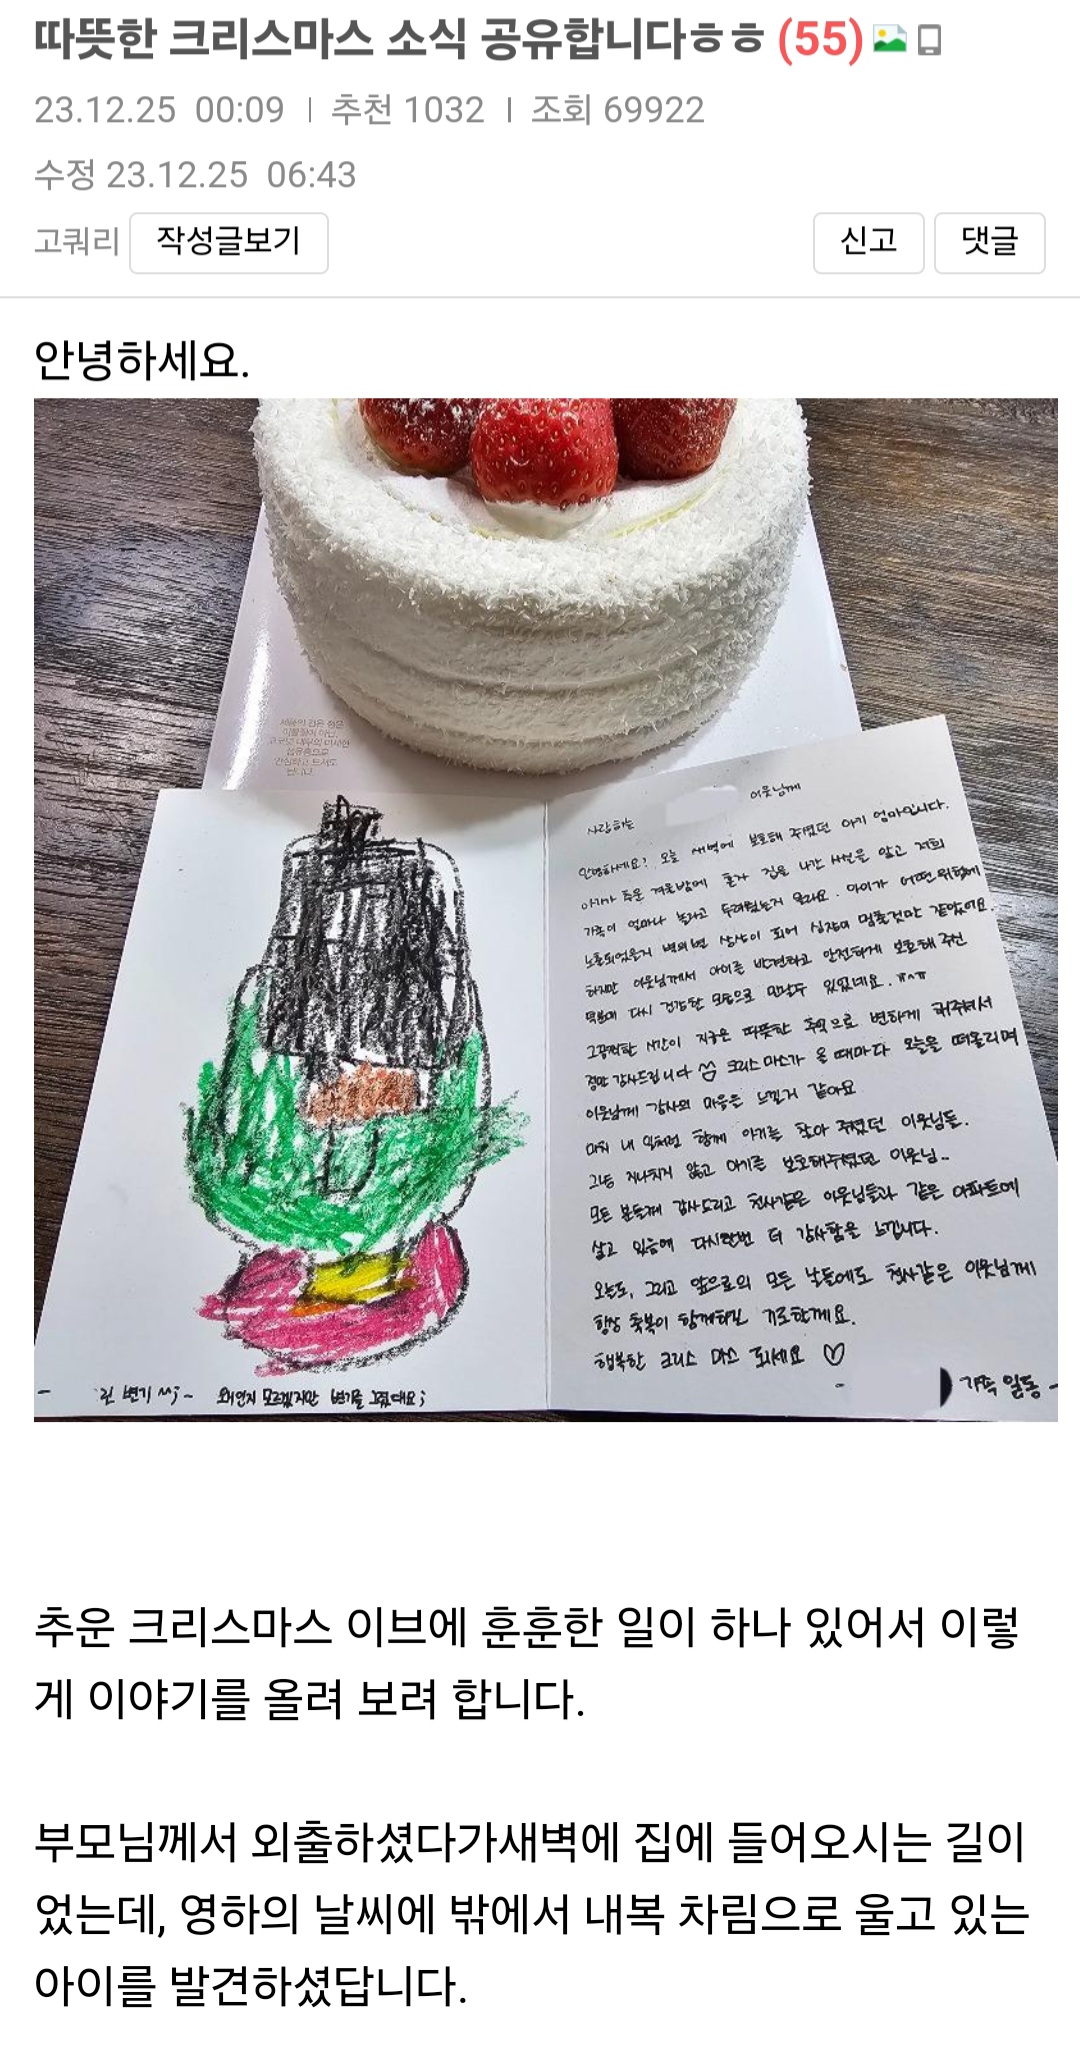 따뜻한 크리스마스 소식 공유합니다ㅎㅎ (55)
23.12.25 00:09 | 추천 1032 | 조회 69922
수정 23.12.25 06:43
고쿼리 작성글보기 신고 댓글
안녕하세요.
이웃님께
사랑하는
안녕하세요! 오늘 새벽에 보호해 주셨던 아기 엄마입니다.
아기가 추운 겨울밤에 혼자 집을 나간 사실을 알고 저희
가족이 얼마나 놀라고 두려웠는지 몰라요. 아이가 어떤 위험에
노출되었을지 별의별 상상이 되어 심장이 멈출것만 같았어요.
하지만 이웃님께서 아이를 발견하고 안전하게 보호해 주신
덕분에 다시 건강한 모습으로 만날수 있었네요. ㅠㅅㅠ
그 끔찍한 시간이 지금은 따뜻한 추억으로 변하게 해주셔서
정말 감사드립니다 크리스마스가 올 때마다 오늘을 떠올리며
이웃님께 감사의 마음을 느낄거 같아요
마치 내 일처럼 함께 아기를 찾아 주셨던 이웃님들.
그냥 지나치지 않고 아기를 보호해주셨던 이웃님..
모든 분들께 감사드리고 천사같은 이웃님들과 같은 아파트에
살고 있음에 다시한번 더 감사함을 느낍니다.
오늘도, 그리고 앞으로의 모든 날들에도 천사같은 이웃님께
항상 축복이 함께하길 기도할게요.
행복한 크리스마스 되세요 ♡
- 가족 일동 -
린 변기 ^^; ~ 왜인지 모르겠지만 변기를 그렸대요;
추운 크리스마스 이브에 훈훈한 일이 하나 있어서 이렇
게 이야기를 올려 보려 합니다.
부모님께서 외출하셨다가새벽에 집에 들어오시는 길이
었는데, 영하의 날씨에 밖에서 내복 차림으로 울고 있는
아이를 발견하셨답니다.